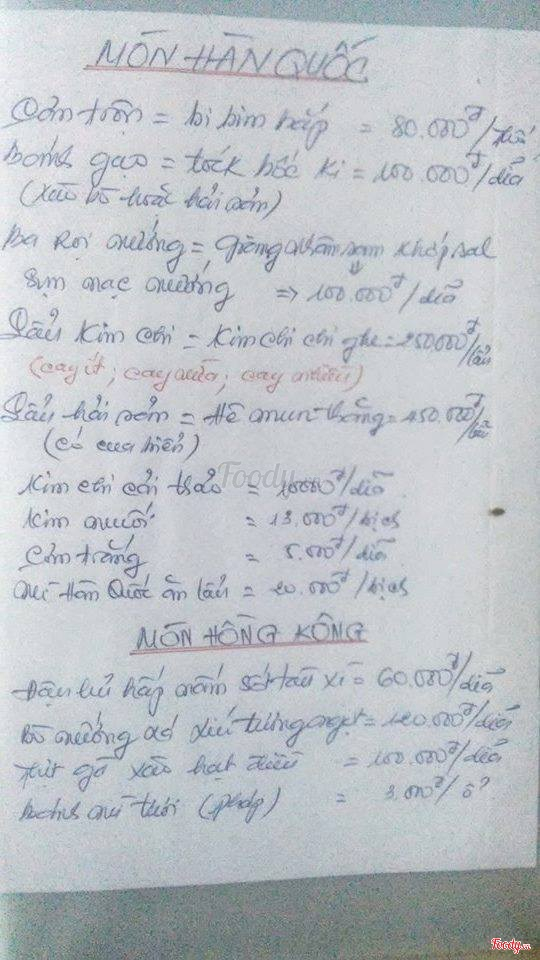 MÓN HÀN QUỐC
Cơm trộn = bi bim bắp = 80.000đ/thố
Bánh gạo = tốck bốc ki = 100.000đ/dĩa
(xào bò hoặc hải sản)
Ba Rọi nướng = sam
Sụn nạc nướng => 100.000đ/dĩa
Lẩu Kim chi = Kim chi chi ghe = 250.000đ/lẩu
(cay ít; cay vừa; cay nhiều)
Lẩu hải sản = Hê mun thăng = 450.000đ/lẩu
(có cua biển)
Kim chi cải thảo = 10000đ/dĩa
Kim = 13.000đ/bịch
Cơm trắng = 5.000đ/dĩa
Mì Hàn Quốc ăn lẩu = 20.000đ/bịch
MÓN HỒNG KÔNG
Đậu hủ hấp nấm sốt tàu xì = 60.000đ/dĩa
Bò nướng xá xíu tương ngọt = 120.000đ/dĩa
Thịt gà xào hạt điều = 100.000đ/dĩa
Bánh mì tươi = 3.000đ/ổ
Foody.vn
Foody.vn